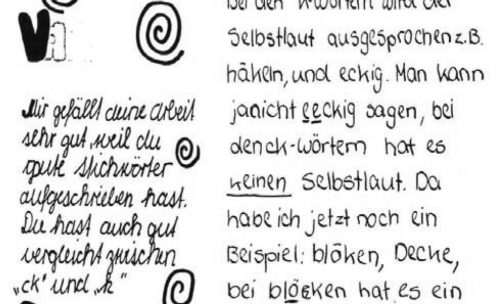 Mir gefällt deine Arbeit
sehr gut, weil du
gute Stichwörter
aufgeschrieben hast.
Du hast auch gut
vergleicht zwischen
„ck" und „k"
bei den k-Wörtern wird der
Selbstlaut ausgesprochen z.B.
häkeln, und eckig. Man kann
janicht eeckig sagen, bei
den ck-wörtern hat es
keinen Selbstlaut. Da
habe ich jetzt noch ein
Beispiel: blöken, Decke,
bei blöcken hat es ein